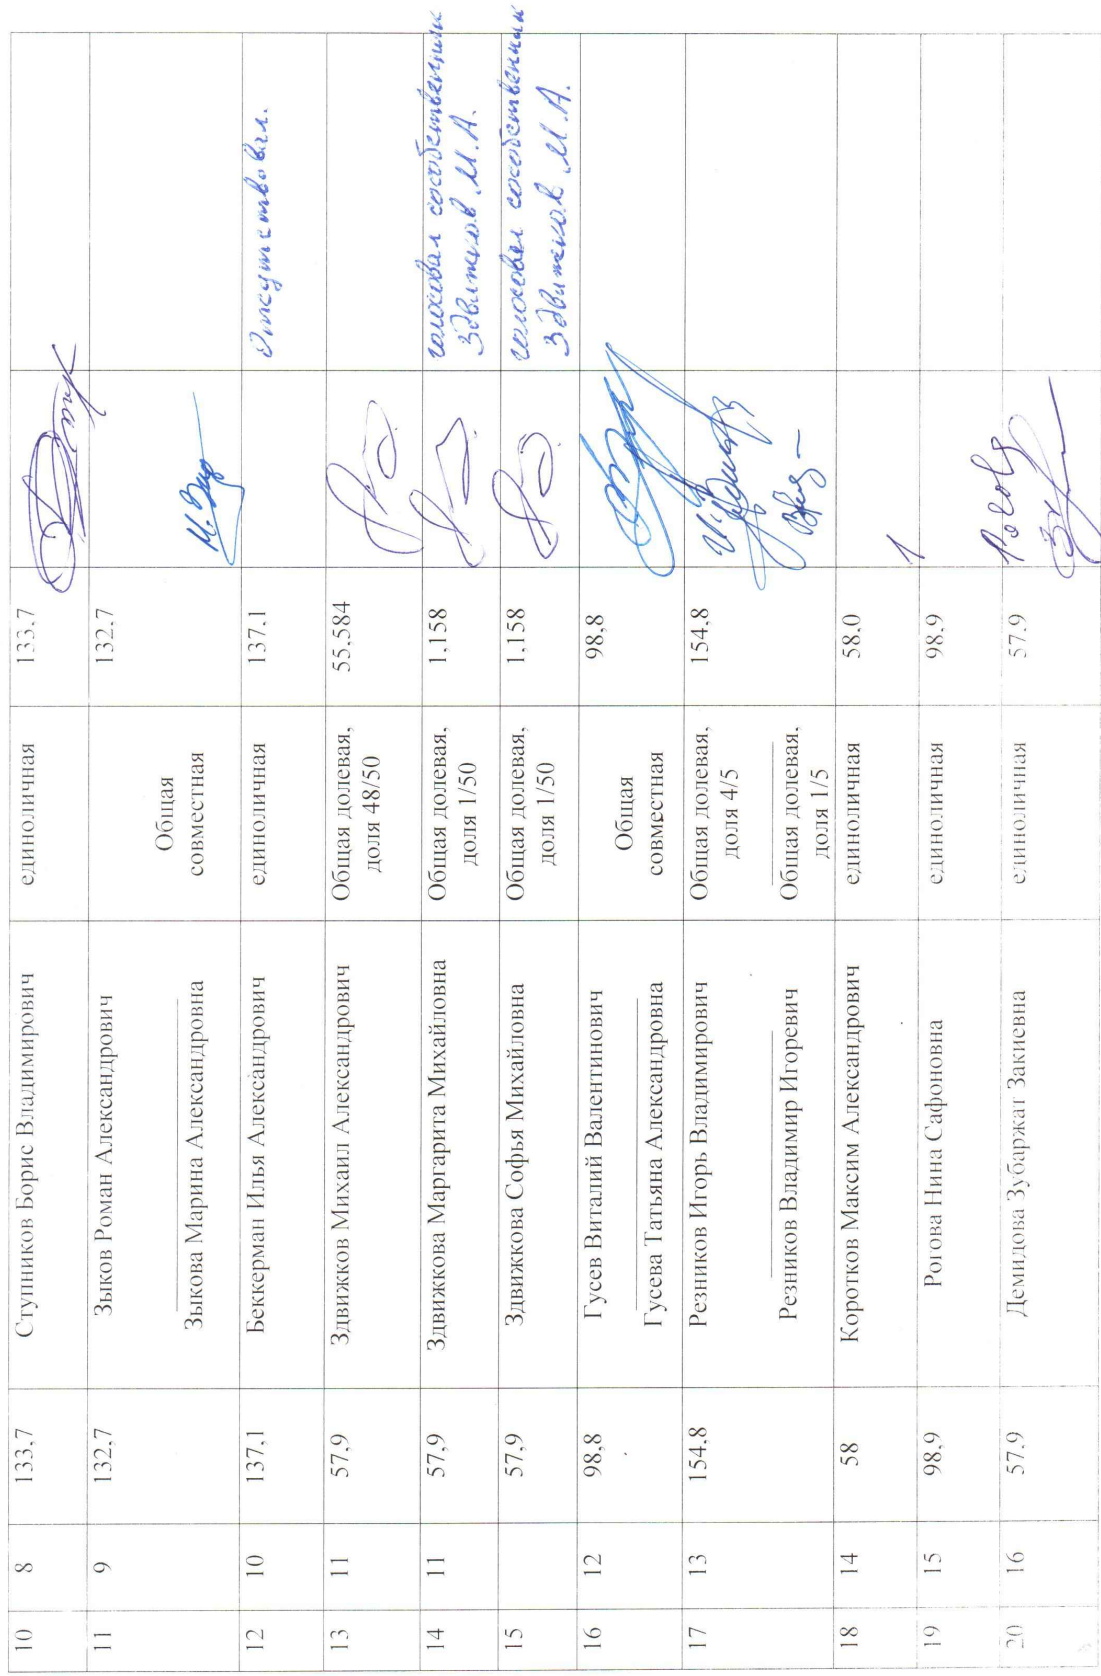 10 8 133,7 Ступников Борис Владимирович единоличная 133.7
11 9 132,7 Зыков Роман Александрович 132.7
Общая
Зыкова Марина Александровна совместная
12 10 137,1 Беккерман Илья Александрович единоличная 137.1 Отсутствовал.
13 11 57,9 Здвижков Михаил Александрович Общая долевая, 55.584
доля 48/50
14 11 57,9 Здвижкова Маргарита Михайловна Общая долевая, 1,158 голосовал сособственник
доля 1/50 Здвижков М.А.
15 57,9 Здвижкова Софья Михайловна Общая долевая, 1,158 голосовал сособственник
доля 1/50 Здвижков М.А.
16 12 98,8 Гусев Виталий Валентинович 98,8
Общая
Гусева Татьяна Александровна совместная
17 13 154.8 Резников Игорь Владимирович Общая долевая, 154.8
доля 4/5
Резников Владимир Игоревич Общая долевая,
доля 1/5
18 14 58 Коротков Максим Александрович единоличная 58.0
19 15 98,9 Рогова Нина Сафоновна единоличная 98.9
20 16 57.9 Демидова Зубаржат Закиевна единоличная 57.9